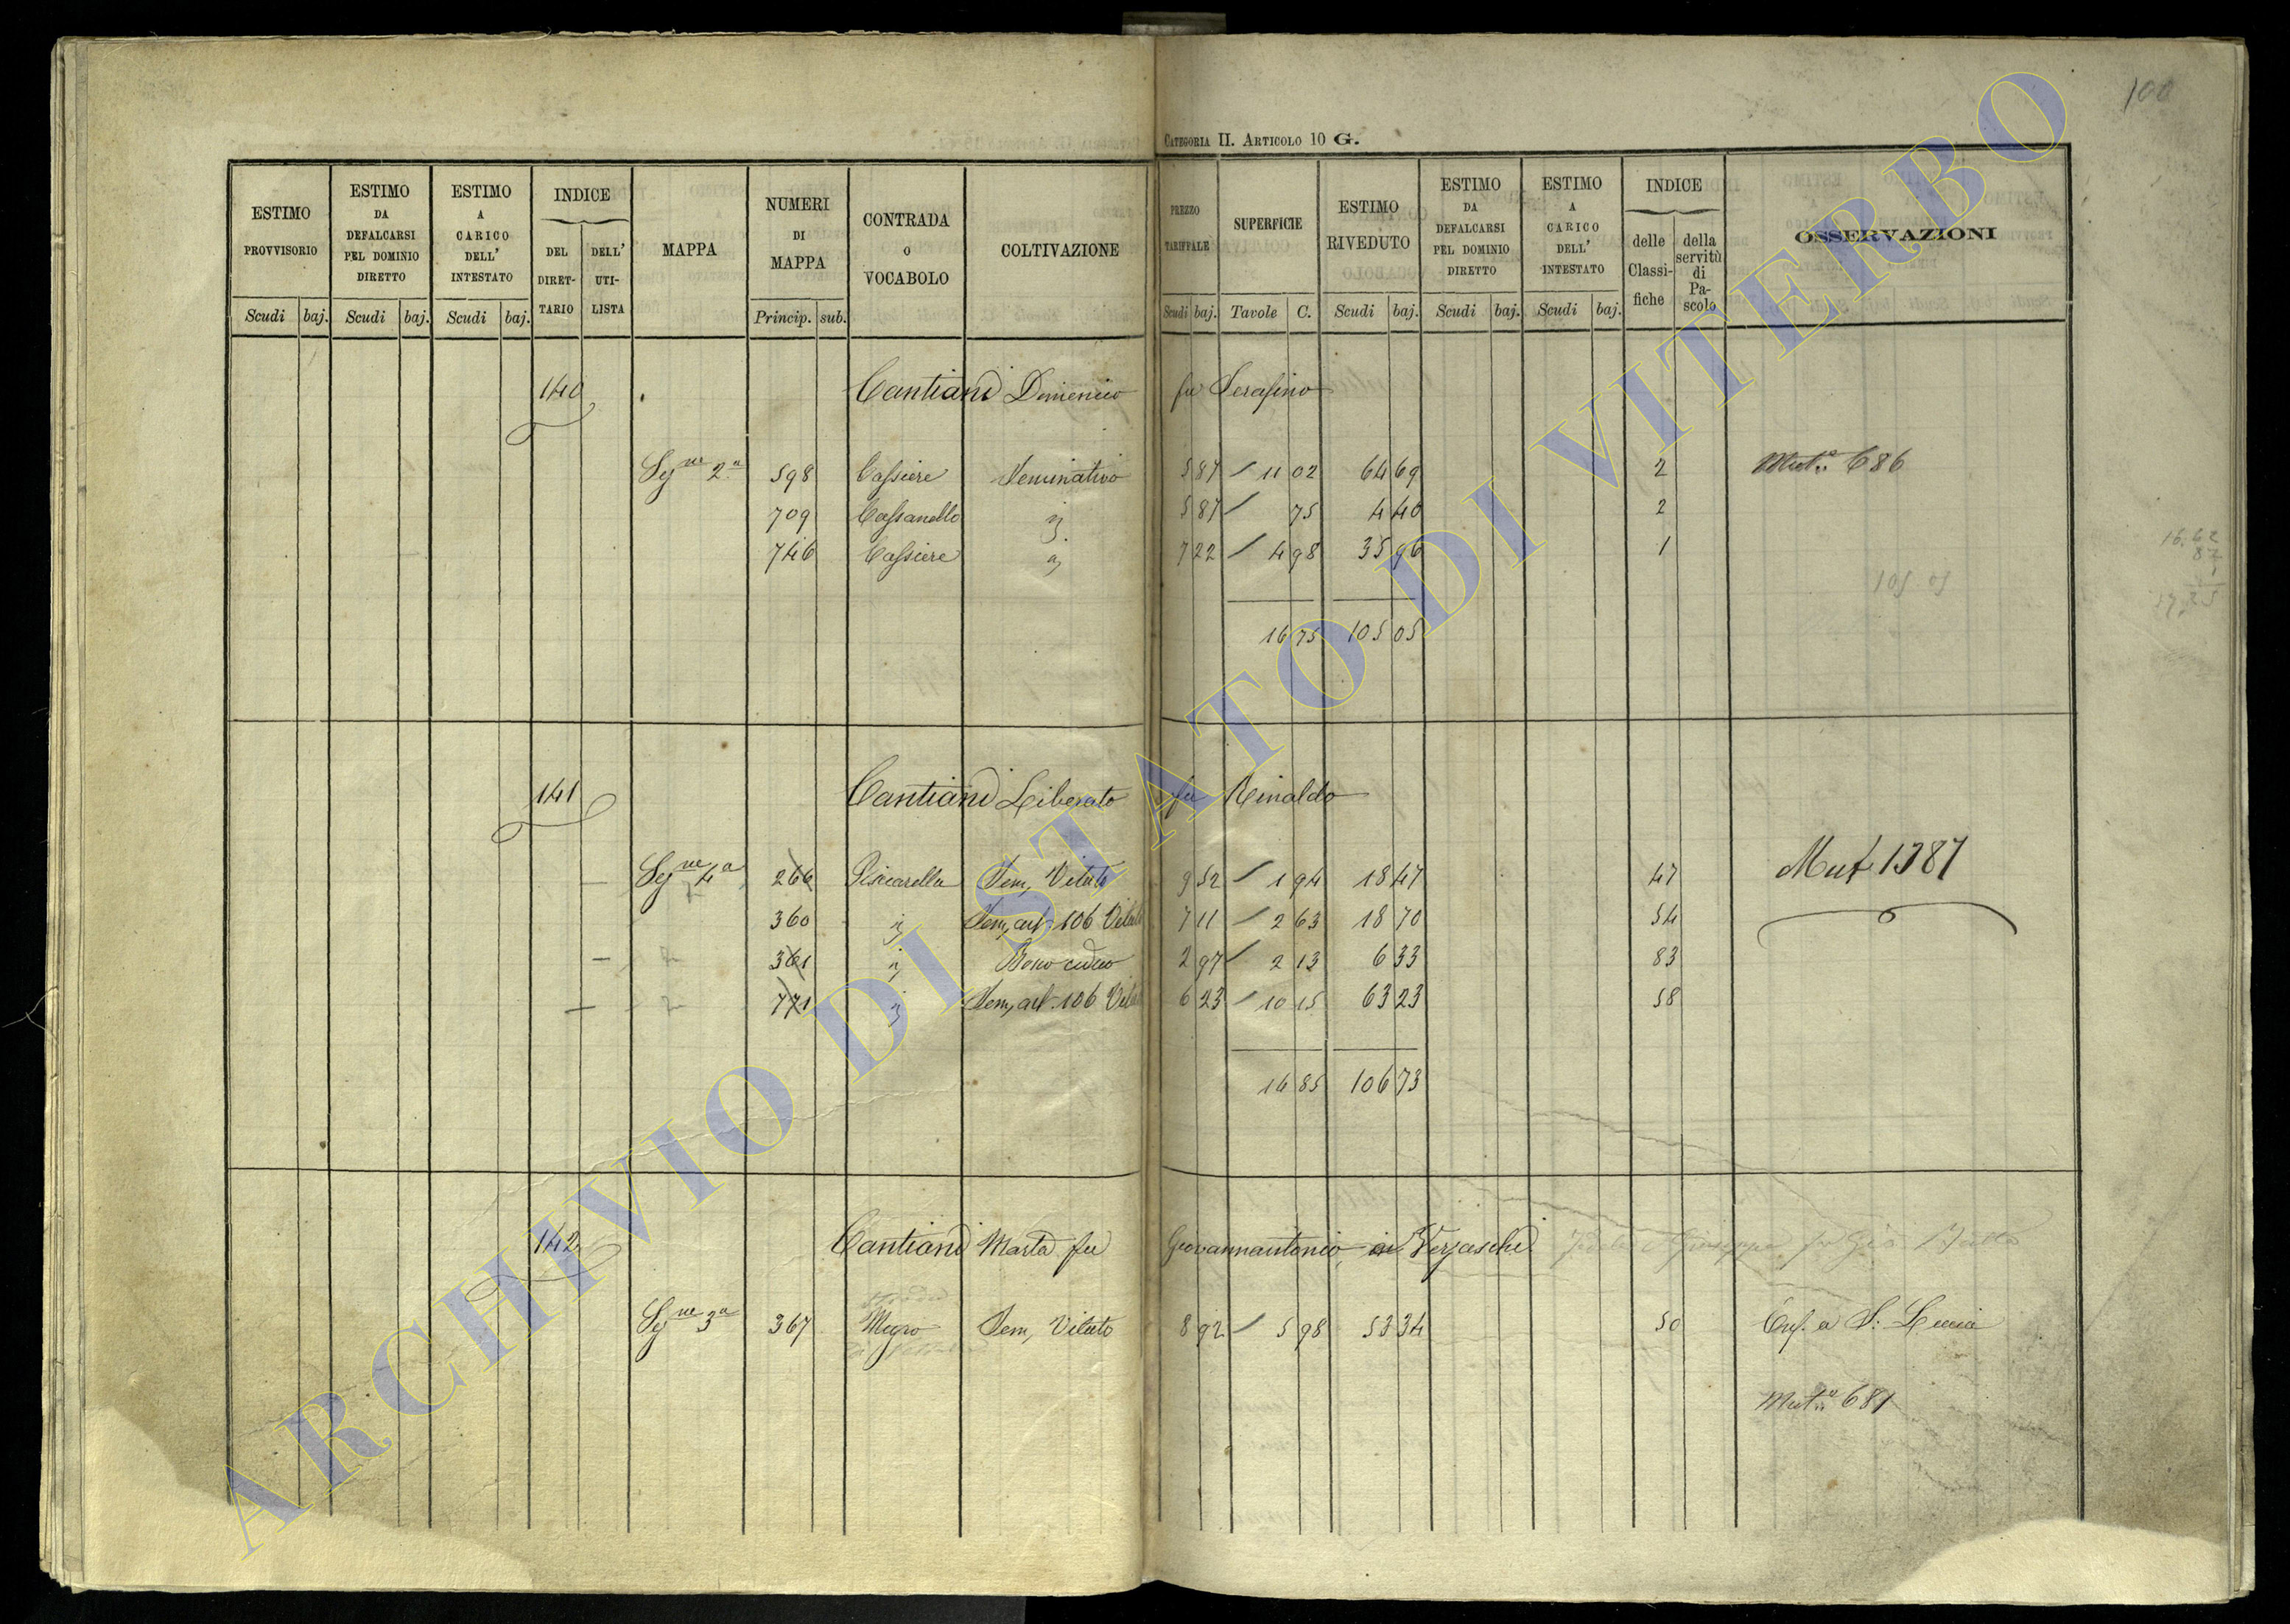 100
CATEGORIA II. ARTICOLO 10 G.
ESTIMO PROVVISORIO
ESTIMO DA DEFALCARSI PEL DOMINIO DIRETTO
ESTIMO A CARICO DELL' INTESTATO
INDICE
DEL DIRET-TARIO
DELL' UTI-LISTA
MAPPA
NUMERI DI MAPPA
CONTRADA O VOCABOLO
COLTIVAZIONE
PREZZO TARIFFALE
SUPERFICIE
ESTIMO RIVEDUTO
ESTIMO DA DEFALCARSI PEL DOMINIO DIRETTO
ESTIMO A CARICO DELL' INTESTATO
INDICE
delle Classi-fiche
della servitù di Pa-scolo
OSSERVAZIONI
Scudi baj. Scudi baj. Scudi baj. Princip. sub. Scudi baj. Tavole C. Scudi baj. Scudi baj. Scudi baj.
140 Cantiani Domenico fu Serafino
Segne 2a 598 Cassiere Seminativo 5 87 11 02 64 69 2 Mut. 686
709 Cassanello 5 87 75 4 40 2
746 Cassiere 7 22 4 98 35 96 1
16.62
87
105 05
16 75 105 05
141 Cantiani Liberato fu Rinaldo
Segne 4a 266 Piscarella Sem. Vitato 9 52 1 94 18 47 47 Mut 1387
360 Sem. art. 106 Vitato 7 11 2 63 18 70 54
361 Bosco ceduo 2 97 2 13 6 33 83
771 Sem. art. 106 6 23 10 15 63 23 58
16 85 106 73
142 Cantiani Marta fu Giovannantonio in Verzaschi
Segne 3a 367 Sem. Vitato 8 92 5 98 53 34 50 Enf. a S. Lucia
Mut. 681
ARCHIVIO DI STATO DI VITERBO